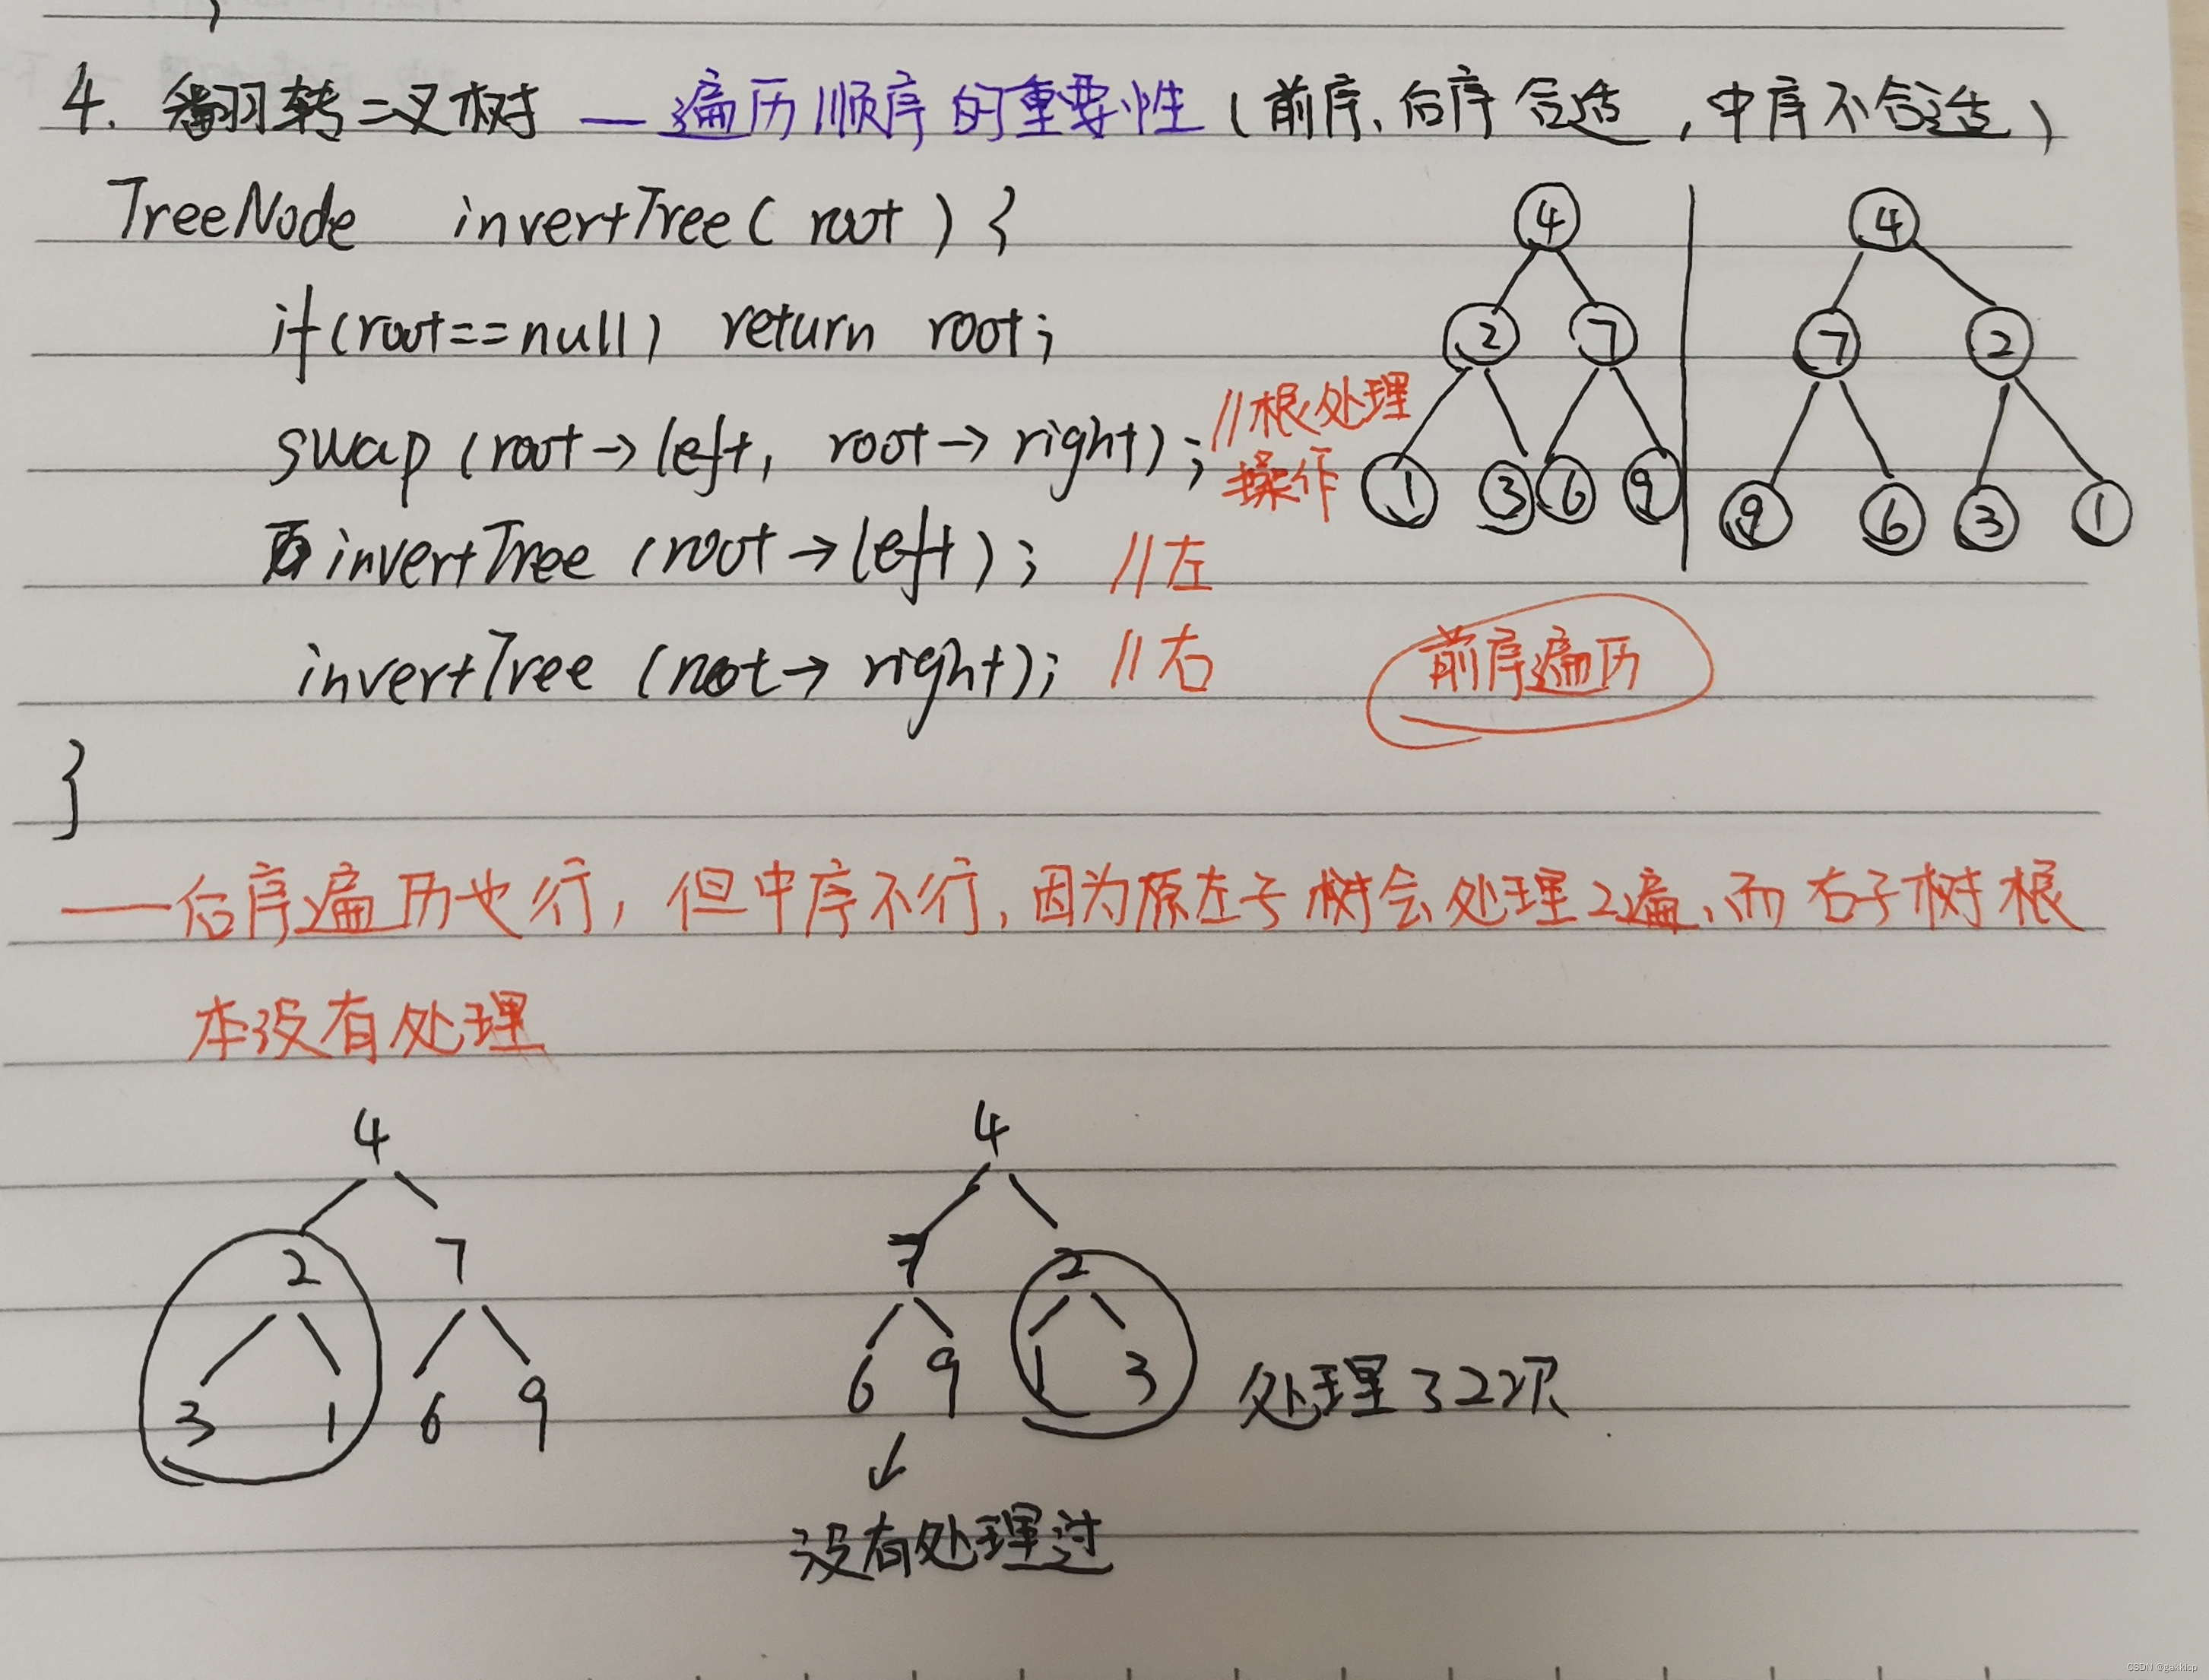 4. 翻转二叉树 — 遍历顺序的重要性(前序、后序合适,中序不合适)
TreeNode invertTree( root ) {
if(root==null) return root;
swap (root→left, root→right); //根处理
操作
invertTree (root→left); //左
invertTree (root→right); //右
前序遍历
}
4 4
2 7 7 2
1 3 6 9 9 6 3 1
——后序遍历也行,但中序不行,因为原左子树会处理2遍、而右子树根
本没有处理
4 4
2 7 7 2
3 1 6 9 6 9 1 3 处理了2次
没有处理过
CSDN @gakkicp